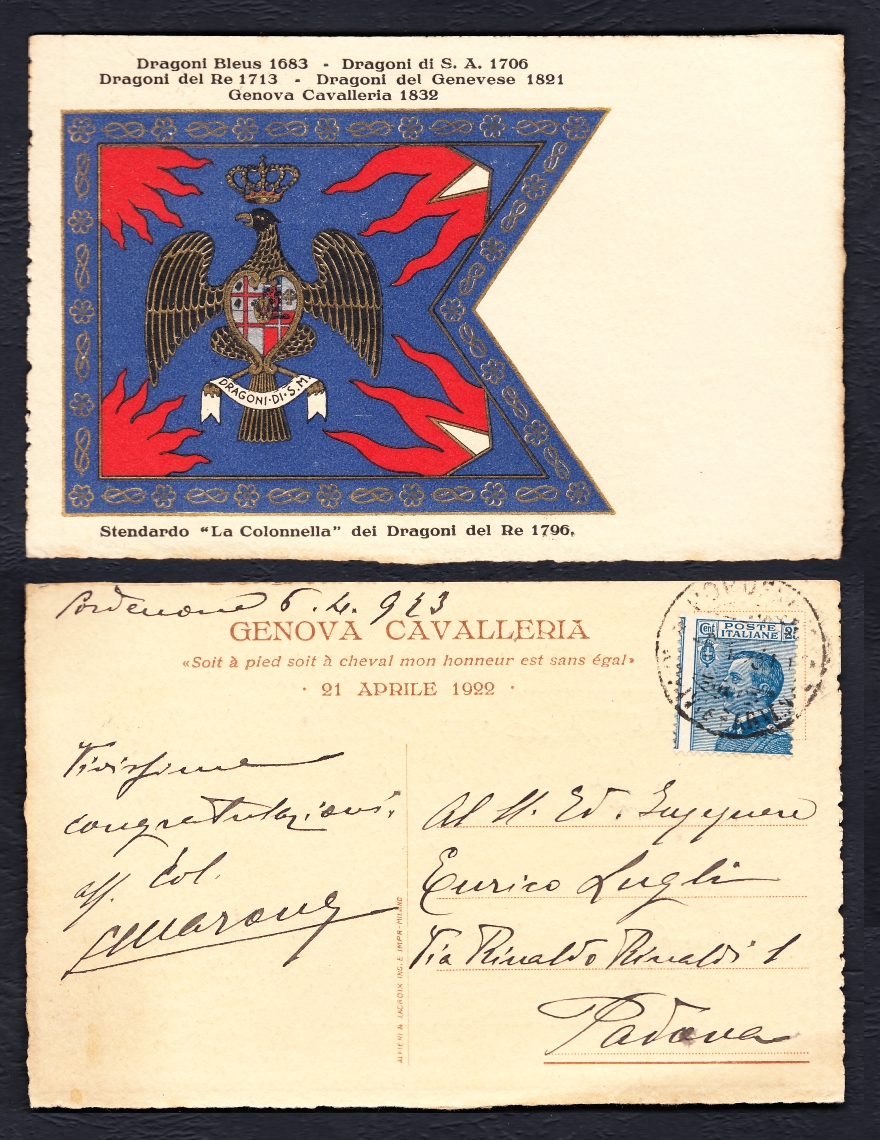 Dragoni Bleus 1683 - Dragoni di S. A. 1706
Dragoni del Re 1713 - Dragoni del Genevese 1821
Genova Cavalleria 1832
DRAGONI·DI·S.M.
Stendardo “La Colonnella” dei Dragoni del Re 1796.
Pordenone 6.4.923
GENOVA CAVALLERIA
«Soit à pied soit à cheval mon honneur est sans égal»
· 21 APRILE 1922 ·
cent POSTE ITALIANE 25
Vivissime
congratulazioni.
aff. Col.
Al Ill. Ed. Ingegnere
Enrico Lugli
Via Rinaldo Rinaldi 1
Padova
ALFIERI & LACROIX ING. E IMPR-MILANO